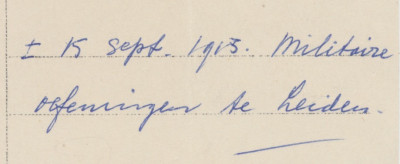 ± 15 Sept. 1913. Militaire
oefeningen te Leiden.